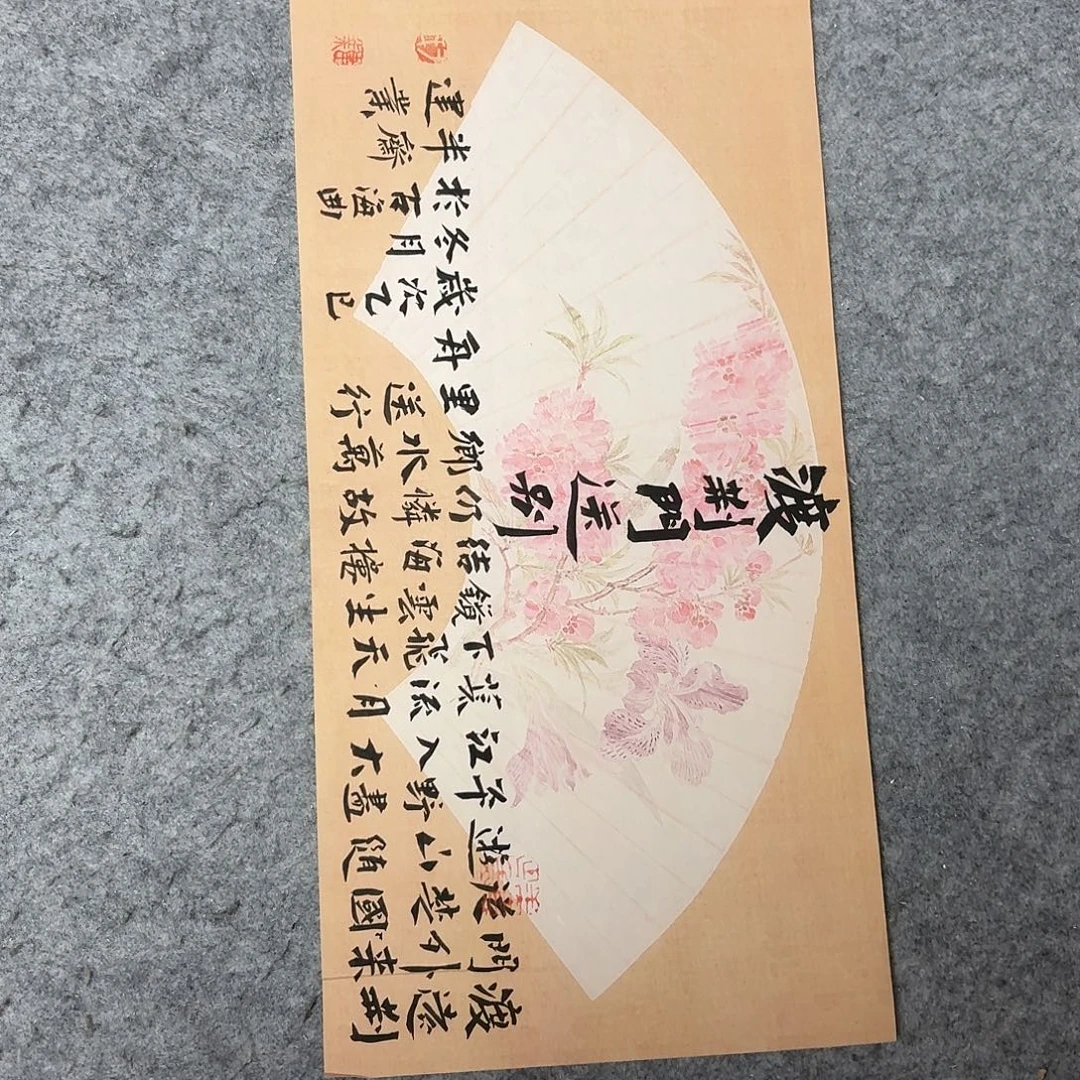 渡荆門送别
渡遠荆
門外来
從楚國
遊山随
平野盡
江入大
荒流月
下飛天
鏡雲生
結海樓
仍憐故
鄉水萬
里送行
舟
歲次乙巳
冬月
於古海曲
半齋
建業